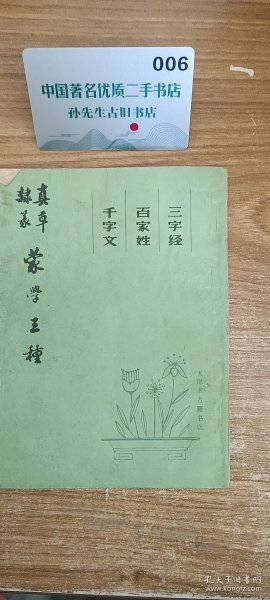 006
中国著名优质二手书店
孙先生古旧书店
三字经
百家姓
千字文
真草
隸篆
蒙學三種
天津市古籍书店
孔夫子旧书网